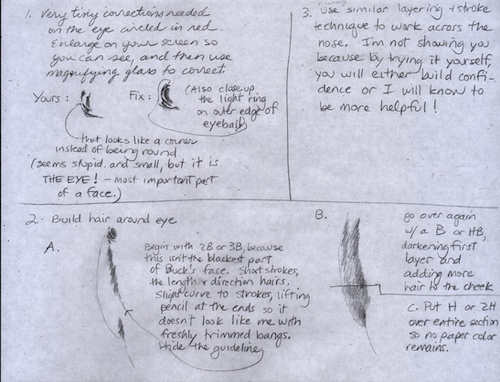 1. Very tiny corrections needed
on the eye circled in red.
Enlarge on your screen so
you can see, and then use
magnifying glass to correct.
Yours:
Fix:
(Also close up
the light ring
on outer edge of
eyeball)
that looks like a corner
instead of being round
(seems stupid and small, but it is
THE EYE! - most important part
of a face.)
3. Use similar layering & stroke
technique to work across the
nose. I'm not showing you
because by trying it yourself,
you will either build confi-
dence or I will know to
be more helpful!
2. Build hair around eye
A.
Begin with 2B or 3B, because
this isn't the blackest part
of Buck's face. Short strokes,
the length & direction hairs.
Slight curve to strokes, lifting
pencil at the ends so it
doesn't look like me with
freshly trimmed bangs.
Hide the guideline
B.
go over again
w/ a B or HB,
darkening first
layer and
adding more
hair to the cheek
C. Put H or 2H
over entire section
so no paper color
remains.